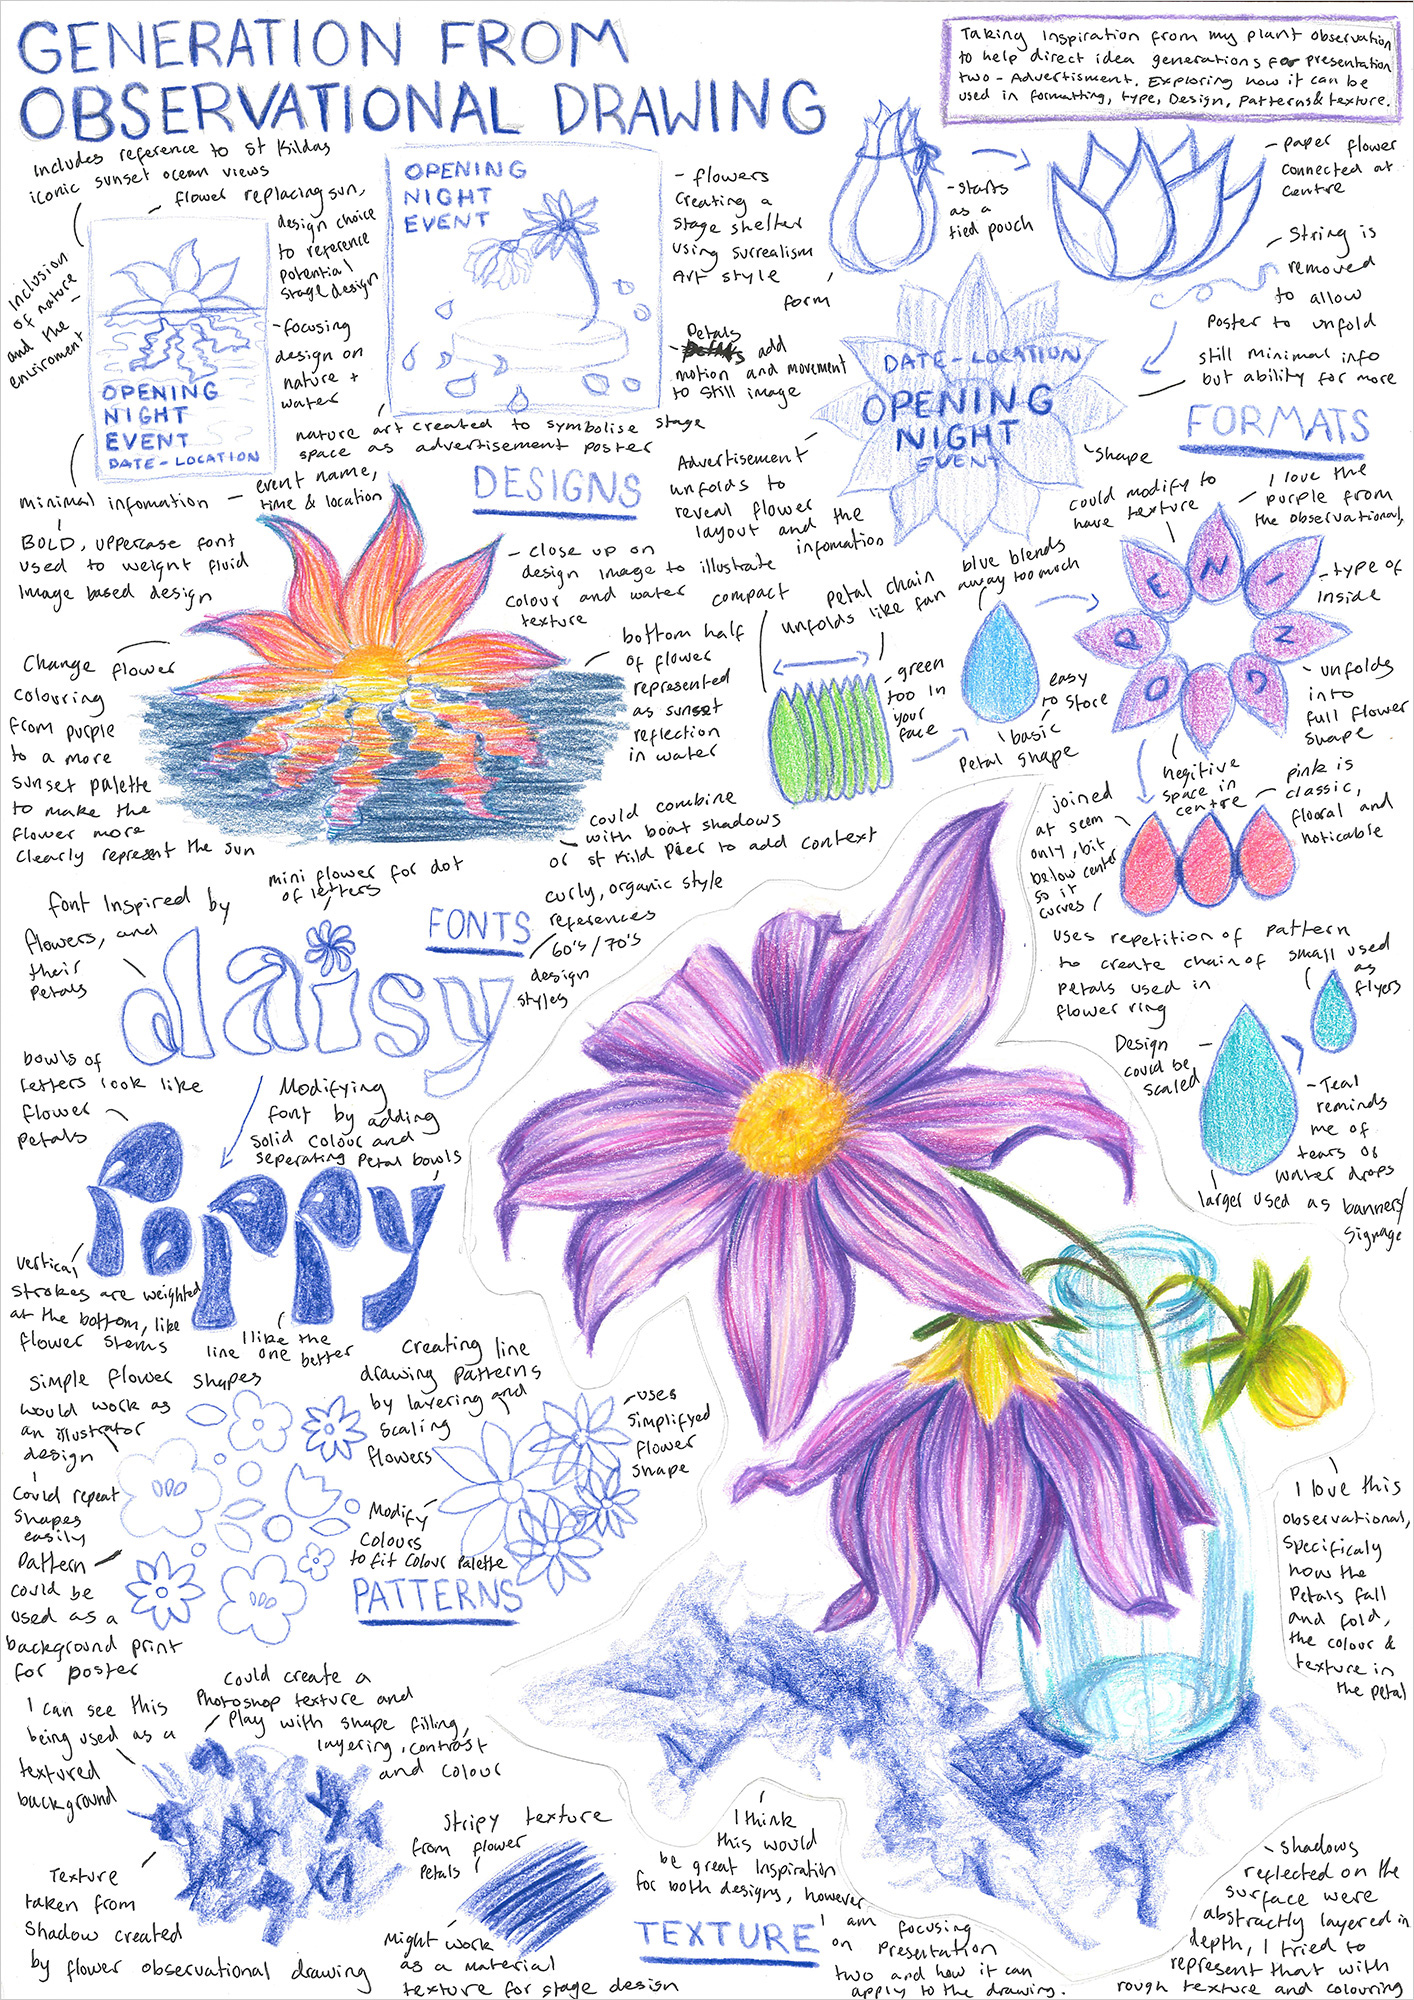 GENERATION FROM
OBSERVATIONAL DRAWING
Taking inspiration from my plant observation
to help direct idea generations for presentation
two - Advertisment. Exploring how it can be
used in formatting, type, Design, patterns & texture.
Includes reference to St Kildas
iconic sunset ocean views
Inclusion
of nature
and the
enviroment
flower replacing sun,
design choice
to reference
potential
stage design
- focusing
design on
nature +
water
OPENING
NIGHT
EVENT
DATE - LOCATION
minimal infomation - event name,
time & location
BOLD, uppercase font
used to weight fluid
image based design
OPENING
NIGHT
EVENT
- flowers
creating a
stage shelter
using surrealism
Art style
- Petals
add
motion and movement
to still image
nature art created to symbolise stage
space as advertisement poster
DESIGNS
- close up on
design image to illustrate
colour and water
texture
Change flower
colouring
from purple
to a more
sunset palette
to make the
flower more
clearly represent the sun
bottom half
of flower
represented
as sunset
reflection
in water
could combine
with boat shadows
or St Kild Pier to add context
- starts
as a
tied pouch
form
- paper flower
connected at
centre
- String is
removed
to allow
poster to unfold
still minimal info
but ability for more
FORMATS
DATE - LOCATION
OPENING
NIGHT
EVENT
Advertisement
unfolds to
reveal flower
layout and the
infomation
shape
could modify to
have texture
- I love the
purple from
the observational,
- type of
inside
OPENING
compact
petal chain
unfolds like fan
blue blends
away too much
- green
too in
your
face
easy
to store
basic
petal shape
- unfolds
into
full flower
shape
negitive
space in
centre
- pink is
classic,
floral and
noticable
joined
at seem
only, bit
below center
so it
curves
uses repetition of pattern
to create chain of
petals used in
flower ring
small used
as
flyers
Design
could be
scaled
- Teal
reminds
me of
tears or
water drops
larger used as banners/
signage
FONTS
font inspired by
flowers, and
their
petals
mini flower for dot
of letters
curly, organic style
references
60's / 70's
design
styles
daisy
bowls of
letters look like
flower
petals
Modifying
font by adding
solid colour and
seperating petal bowls
poppy
vertical
strokes are weighted
at the bottom, like
flower stems
I like the
line one better
Simple flower shapes
would work as
an illustrator
design
Could repeat
shapes
easily
Pattern
could be
used as a
background print
for poster
Creating line
drawing patterns
by layering and
scaling
flowers
- uses
simplifyed
flower
shape
Modify
colours
to fit colour palette
PATTERNS
I love this
observational,
specificaly
how the
petals fall
and fold,
the colour &
texture in
the petal
Could create a
Photoshop texture and
play with shape filling,
layering, contrast
and colour
I can see this
being used as a
textured
background
Texture
taken from
shadow created
by flower observational drawing
Stripy texture
from flower
petals
Might work
as a material
texture for stage design
TEXTURE
I think
this would
be great inspiration
for both designs, however
I am focusing
on presentation
two and how it can
apply to the drawing.
- shadows
reflected on the
surface were
abstractly layered in
depth, I tried to
represent that with
rough texture and colouring